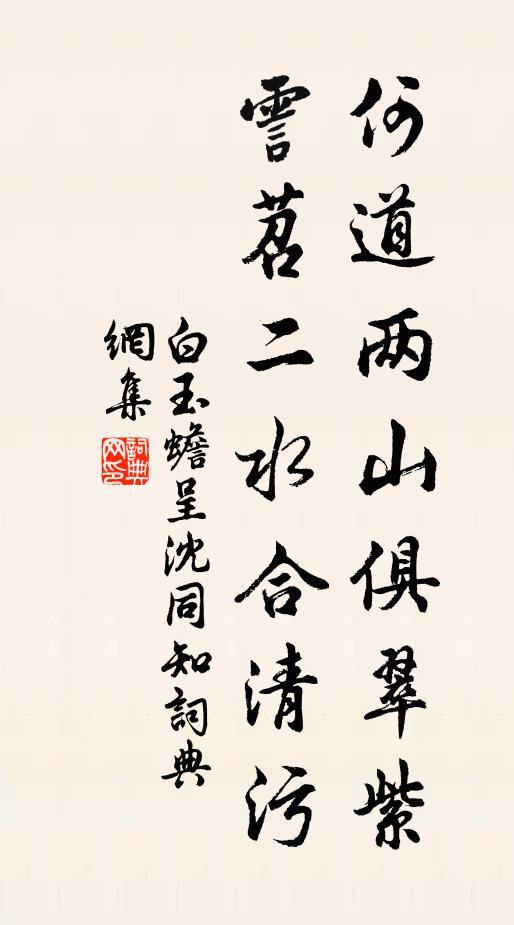 何道两山俱翠紫
霅苕二水合清污
白玉蟾呈沈同知詞典
網集
詞典網印